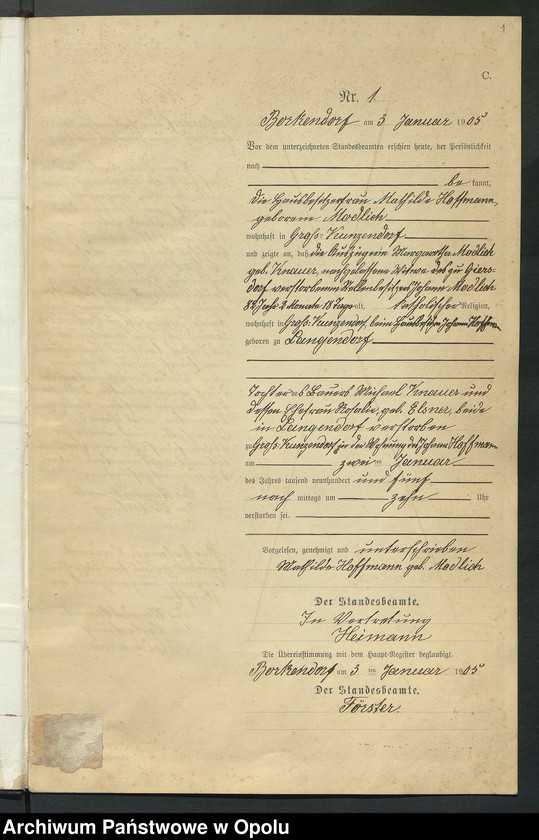 1
C.
Nr. 1.
Borkendorf am 3 Januar 1905
Vor dem unterzeichneten Standesbeamten erschien heute, der Persönlichkeit
nach
be kannt,
die Hausbesitzerfrau Mathilde Hoffmann,
geborene Modlich
wohnhaft in Groß: Kunzendorf
und zeigte an, daß die Auszügerin Margarethe Modlich
geb. Knauer, nachgelassene Witwe des zu Giers-
dorf verstorbenen Stellenbesitzers Johann Modlich
88 Jahr 2 Monate 18 Tage alt, katholischer Religion,
wohnhaft in Groß: Kunzendorf, beim Hausbesitzer Johann Hoffmann
geboren zu Langendorf
Tochter des Bauers Michael Knauer und
dessen Ehefrau Rosalie, geb. Elsner, beide
in Langendorf verstorben
zu Groß: Kunzendorf in der Wohnung des Johann Hoffmann
am zwei ten Januar
des Jahres tausend neunhundert und fünf
nach mittags um zehn Uhr
verstorben sei.
Vorgelesen, genehmigt und unterschrieben
Mathilde Hoffmann geb. Modlich
Der Standesbeamte.
In Vertretung
Heimann
Die Übereinstimmung mit dem Haupt-Register beglaubigt.
Borkendorf am 3 ten Januar 1905
Der Standesbeamte.
Förster.
Archiwum Państwowe w Opolu